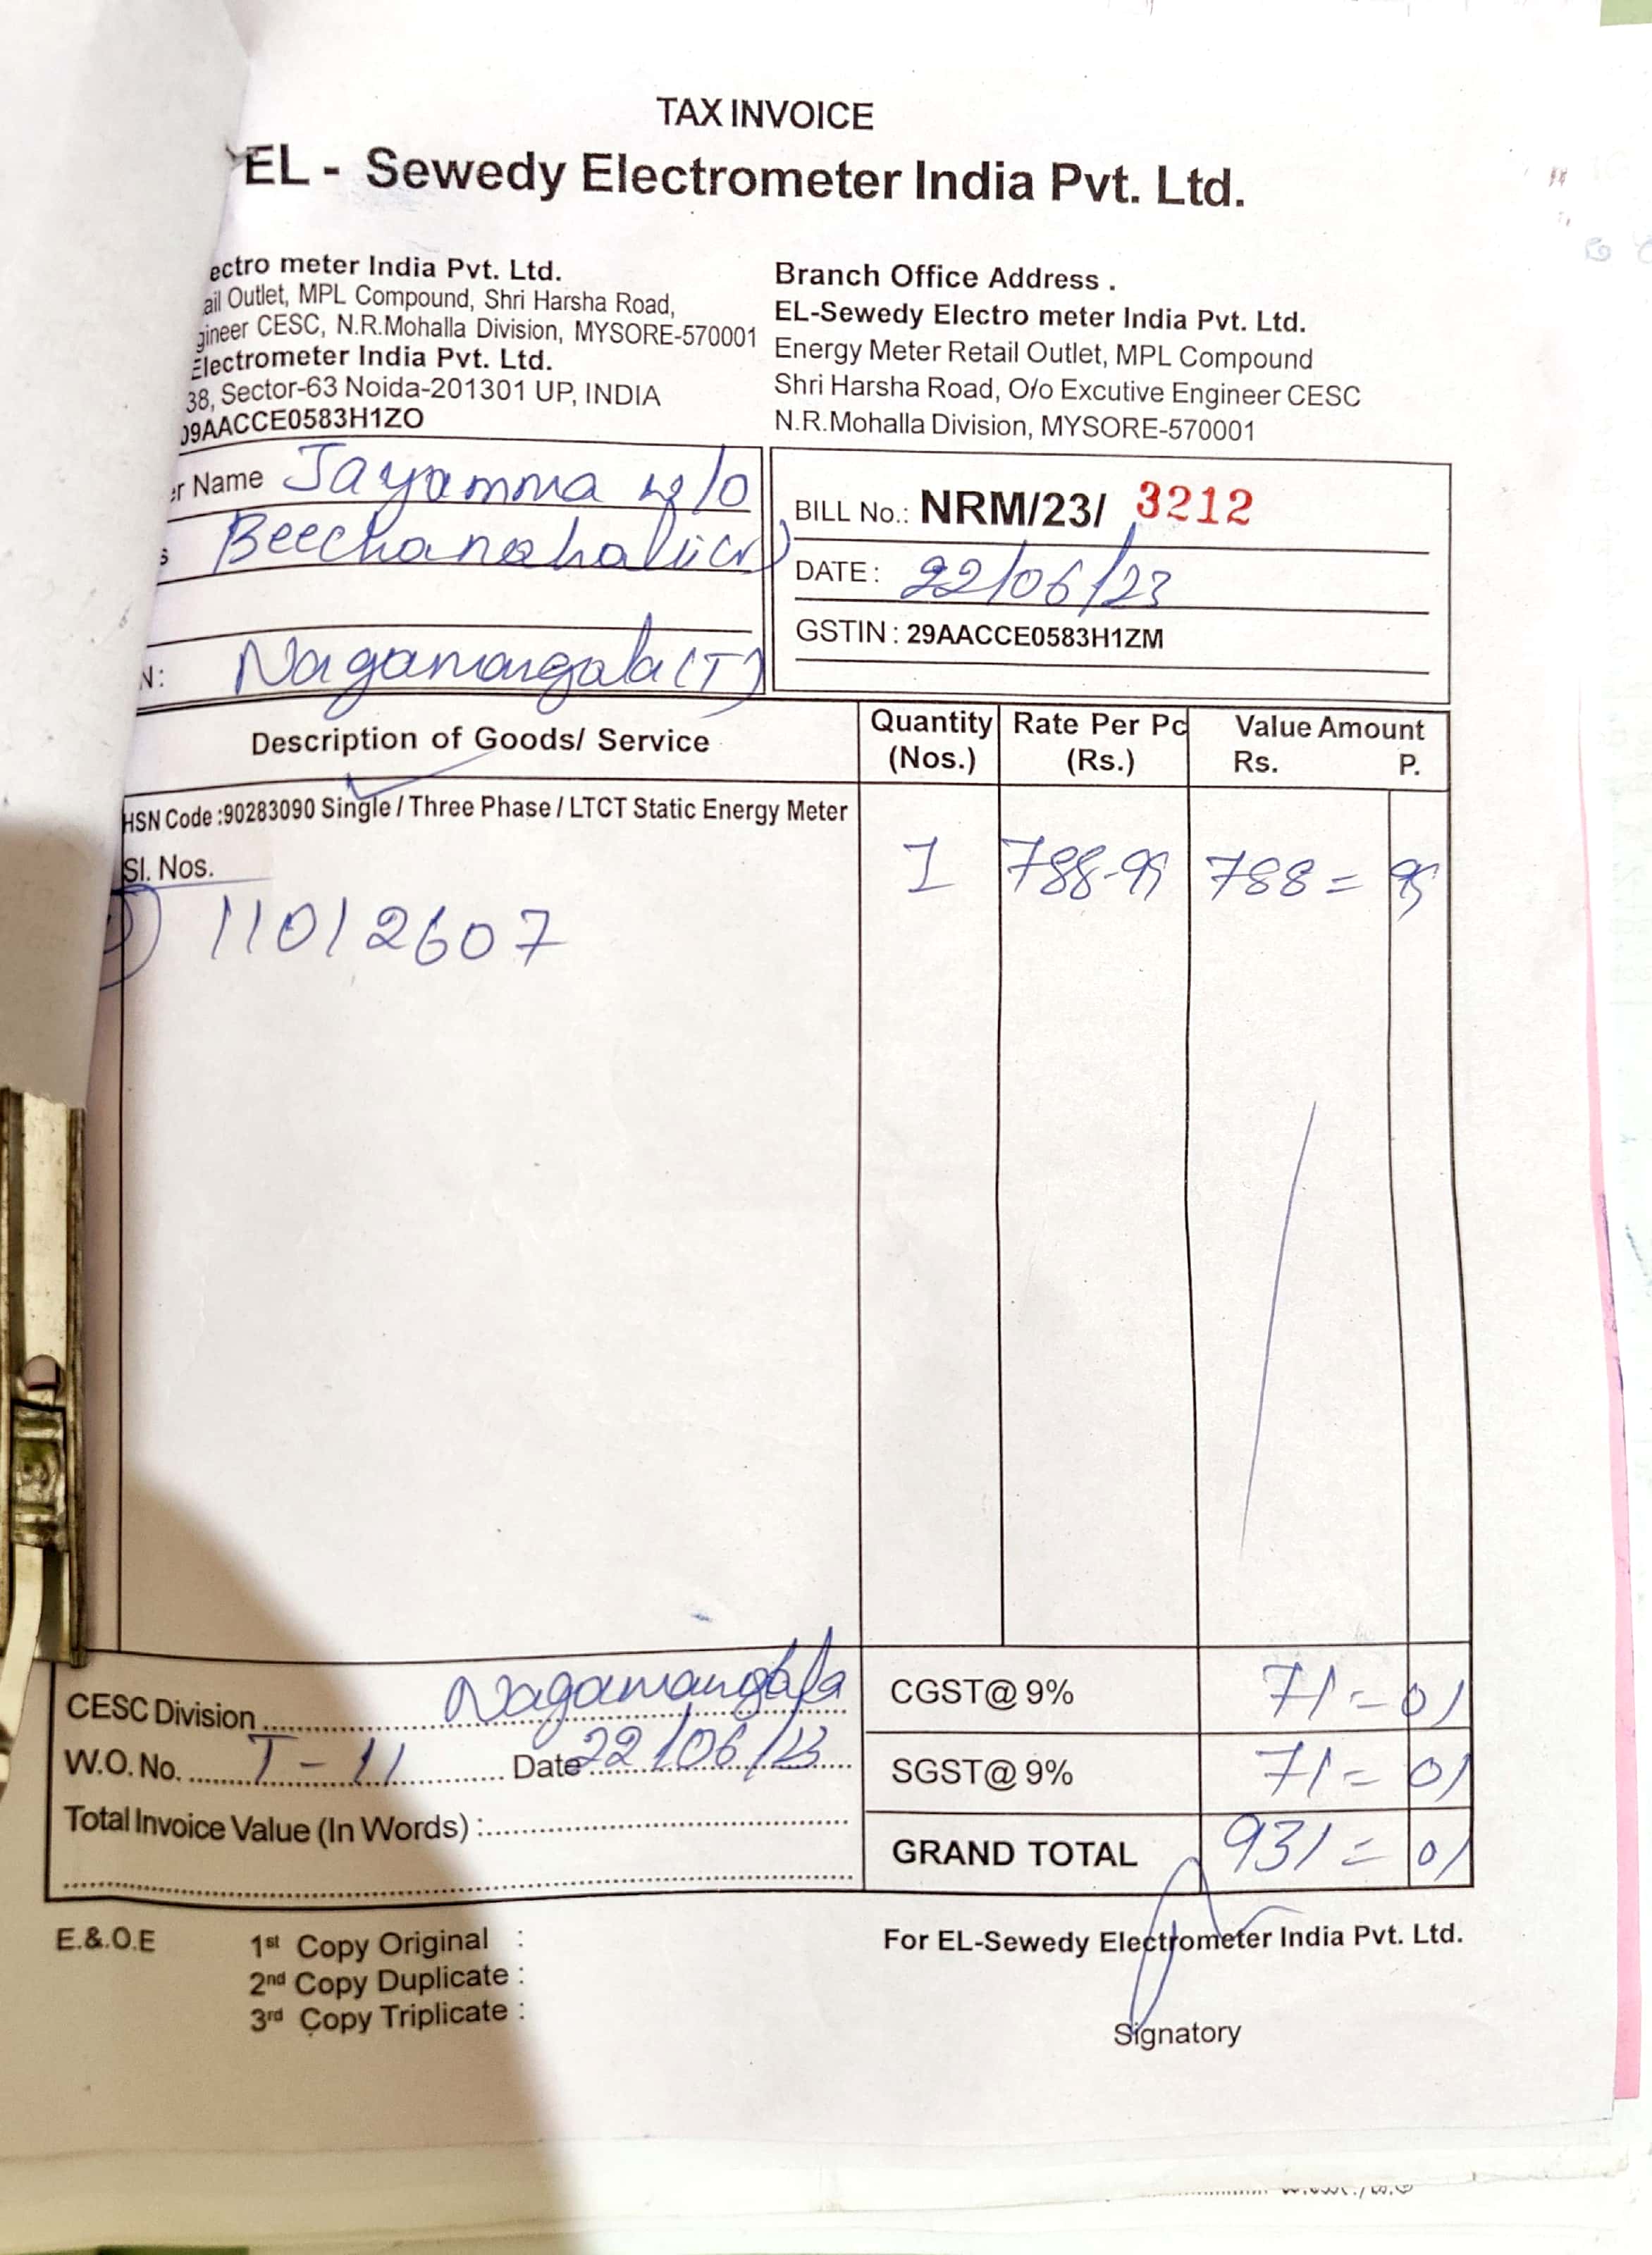 TAX INVOICE
EL - Sewedy Electrometer India Pvt. Ltd.
ectro meter India Pvt. Ltd.
ail Outlet, MPL Compound, Shri Harsha Road,
gineer CESC, N.R.Mohalla Division, MYSORE-570001
Electrometer India Pvt. Ltd.
38, Sector-63 Noida-201301 UP, INDIA
09AACCE0583H1ZO
Branch Office Address .
EL-Sewedy Electro meter India Pvt. Ltd.
Energy Meter Retail Outlet, MPL Compound
Shri Harsha Road, O/o Excutive Engineer CESC
N.R.Mohalla Division, MYSORE-570001
er Name Jayamma w/o
s Beechanahalli(V)
N: Nagamangala (T)
BILL No.: NRM/23/ 3212
DATE : 22/06/23
GSTIN : 29AACCE0583H1ZM
Description of Goods/ Service Quantity (Nos.) Rate Per Pc (Rs.) Value Amount Rs. P.
HSN Code :90283090 Single / Three Phase / LTCT Static Energy Meter
Sl. Nos. 1 788-99 788 = 99
11012607
CESC Division Nagamangala CGST@ 9% 71 = 01
W.O. No. T - 11 Date 22/06/23 SGST@ 9% 71 = 01
Total Invoice Value (In Words) : GRAND TOTAL 931 = 01
E.&.O.E
1st Copy Original :
2nd Copy Duplicate :
3rd Copy Triplicate :
For EL-Sewedy Electrometer India Pvt. Ltd.
Signatory